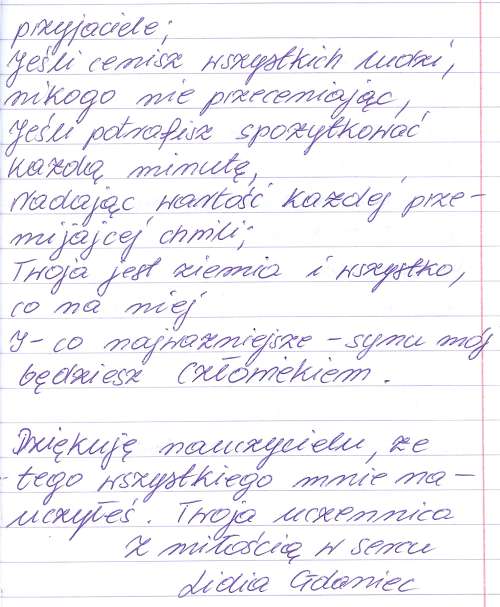 przyjaciele;
Jeśli cenisz wszystkich ludzi,
nikogo nie przeceniając,
Jeśli potrafisz spożytkować
każdą minutę,
Nadając wartość każdej prze-
mijającej chwili;
Twoja jest ziemia i wszystko,
co na niej
I - co najważniejsze - synu mój
będziesz Człowiekiem.
Dziękuję nauczycielu, że
tego wszystkiego mnie na-
uczyłeś. Twoja uczennica
z miłością w sercu
Lidia Gdaniec